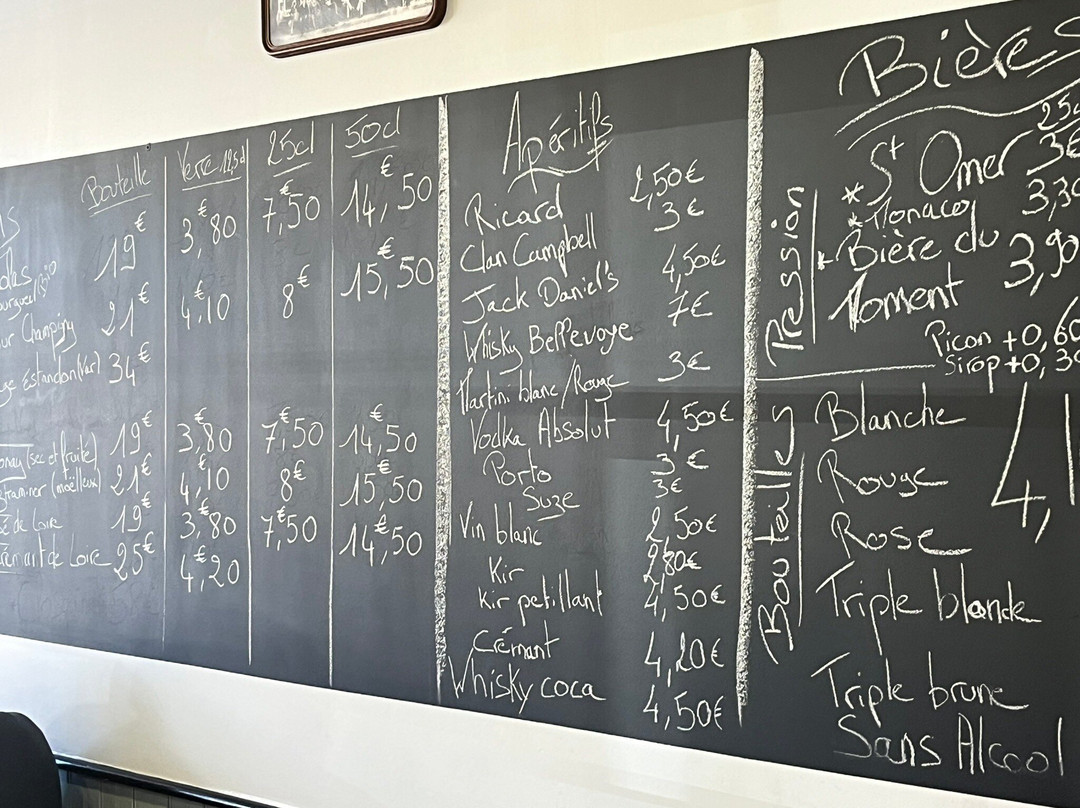 Bouteille Verre 12,5cl 25cl 50cl
19€ 3,€80 7,€50 14,€50
21€ 4,€10 8€ 15,€50
ur Champigny
Estandon (Var) 34€
19€ 3,€80 7,€50 14,€50
(sec et fruité)
traminer (moëlleux) 21€ 4,€10 8€ 15,€50
de Loire 19€ 3,€80 7,€50 14,€50
de Loire 25€ 4,€20
Apéritifs
Ricard 2,50€
Clan Campbell 3€
Jack Daniel's 4,50€
Whisky Bellevoye 7€
Martini blanc/Rouge 3€
Vodka Absolut 4,50€
Porto 3€
Suze 3€
Vin blanc 2,50€
Kir 2,80€
Kir petillant 4,50€
Crémant 4,20€
Whisky coca 4,50€
Bières
25c
Pression
* St Omer 3€
* Monaco 3,30
* Bière du
Moment 3,90
Picon +0,60
Sirop +0,30
Bouteilles
Blanche
Rouge
Rose
Triple blonde
Triple brune
Sans Alcool
4,